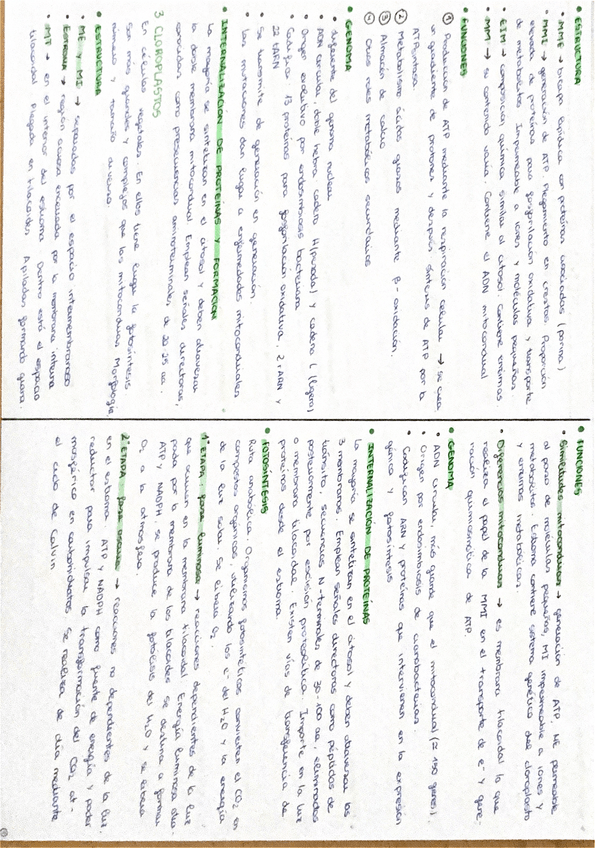 • ESTRUCTURA
• MME → bicapa lipídica con proteínas asociadas (porina)
• MMI → generación de ATP. Plegamiento en crestas. Proporción
elevada de proteínas para fosforilación oxidativa y transporte
de metabolitos. Impermeable a iones y moléculas pequeñas.
• EIM → composición química similar al citosol. Contiene enzimas.
• MM → su contenido varía. Contiene el ADN mitocondrial
• FUNCIONES
① Producción de ATP mediante la respiración celular → se crea
un gradiente de protones y después síntesis de ATP por la
ATPsintasa.
② Metabolismo ácidos grasos mediante β-oxidación.
③ Almacén de calcio
④ Otras rutas metabólicas secundarias
• GENOMA
• diferente del genoma nuclear
• ADN circular, doble hebra cadena H (pesada) y cadena L (ligera)
• Origen evolutivo por endosimbiosis bacteriana
• Codifica 13 proteínas para fosforilación oxidativa, 2 rARN y
22 tARN
• Se transmite de generación en generación.
• Las mutaciones dan lugar a enfermedades mitocondriales
• INTERNALIZACIÓN DE PROTEÍNAS Y FORMACIÓN
La mayoría se sintetizan en el citosol y deben atravesar
la doble membrana mitocondrial. Emplean señales directoras,
conocidas como presecuencias aminoterminales, de 20-25 aa.
3. CLOROPLASTOS
En células vegetales. En ellos tiene lugar la fotosíntesis
Son más grandes y complejos que las mitocondrias. Morfología
número y tamaño diverso
• ESTRUCTURA
• ME y MI → separadas por el espacio intermembranoso
• Estroma → región acuosa encerrada por la membrana interna
• MT → en el interior del estroma. Dentro está el espacio
tilacoidal. Plegada en tilacoides. Apilados formando grana.
• FUNCIONES
• Similitudes mitocondrias → generación de ATP. ME permeable
al paso de moléculas pequeñas, MI impermeable a iones y
metabolitos. Estroma contiene sistema genético del cloroplasto
y enzimas metabólicas.
• Diferencias mitocondrias → es membrana tilacoidal la que
realiza el papel de la MMI en el transporte de e⁻ y gene-
ración quimiosmótica de ATP.
• GENOMA
• ADN circular, más grande que el mitocondrial (≈ 150 genes).
• Origen por endosimbiosis de cianobacterias.
• Codifican ARN y proteínas que intervienen en la expresión
génica y fotosíntesis
• INTERNALIZACIÓN DE PROTEÍNAS
La mayoría se sintetizan en el citosol y deben atravesar las
3 membranas. Emplean señales directoras como péptidos de
tránsito, secuencias N-terminales de 30-100 aa, eliminados
posteriormente por escisión proteolítica. Importe en la luz
o membrana tilacoidal. Existen vías de transferencia de
proteínas desde el estroma.
• FOTOSÍNTESIS
Ruta anabólica. Organismos fotosintéticos convierten el CO₂ en
compuestos orgánicos, utilizando los e⁻ del H₂O y la energía
de la luz solar. Se libera O₂.
1ª ETAPA, fase luminosa → reacciones dependientes de la luz
que ocurren en la membrana tilacoidal. Energía luminosa atra-
pada por la membrana de los tilacoides se destina a formar
ATP y NADPH, se produce la fotólisis del H₂O y se libera
O₂ a la atmósfera.
2ª ETAPA, fase oscura → reacciones no dependientes de la luz,
en el estroma. ATP y NADPH como fuente de energía y poder
reductor para impulsar la transformación del CO₂ at-
mosférico en carbohidratos. Se realiza de día mediante
el ciclo de Calvin